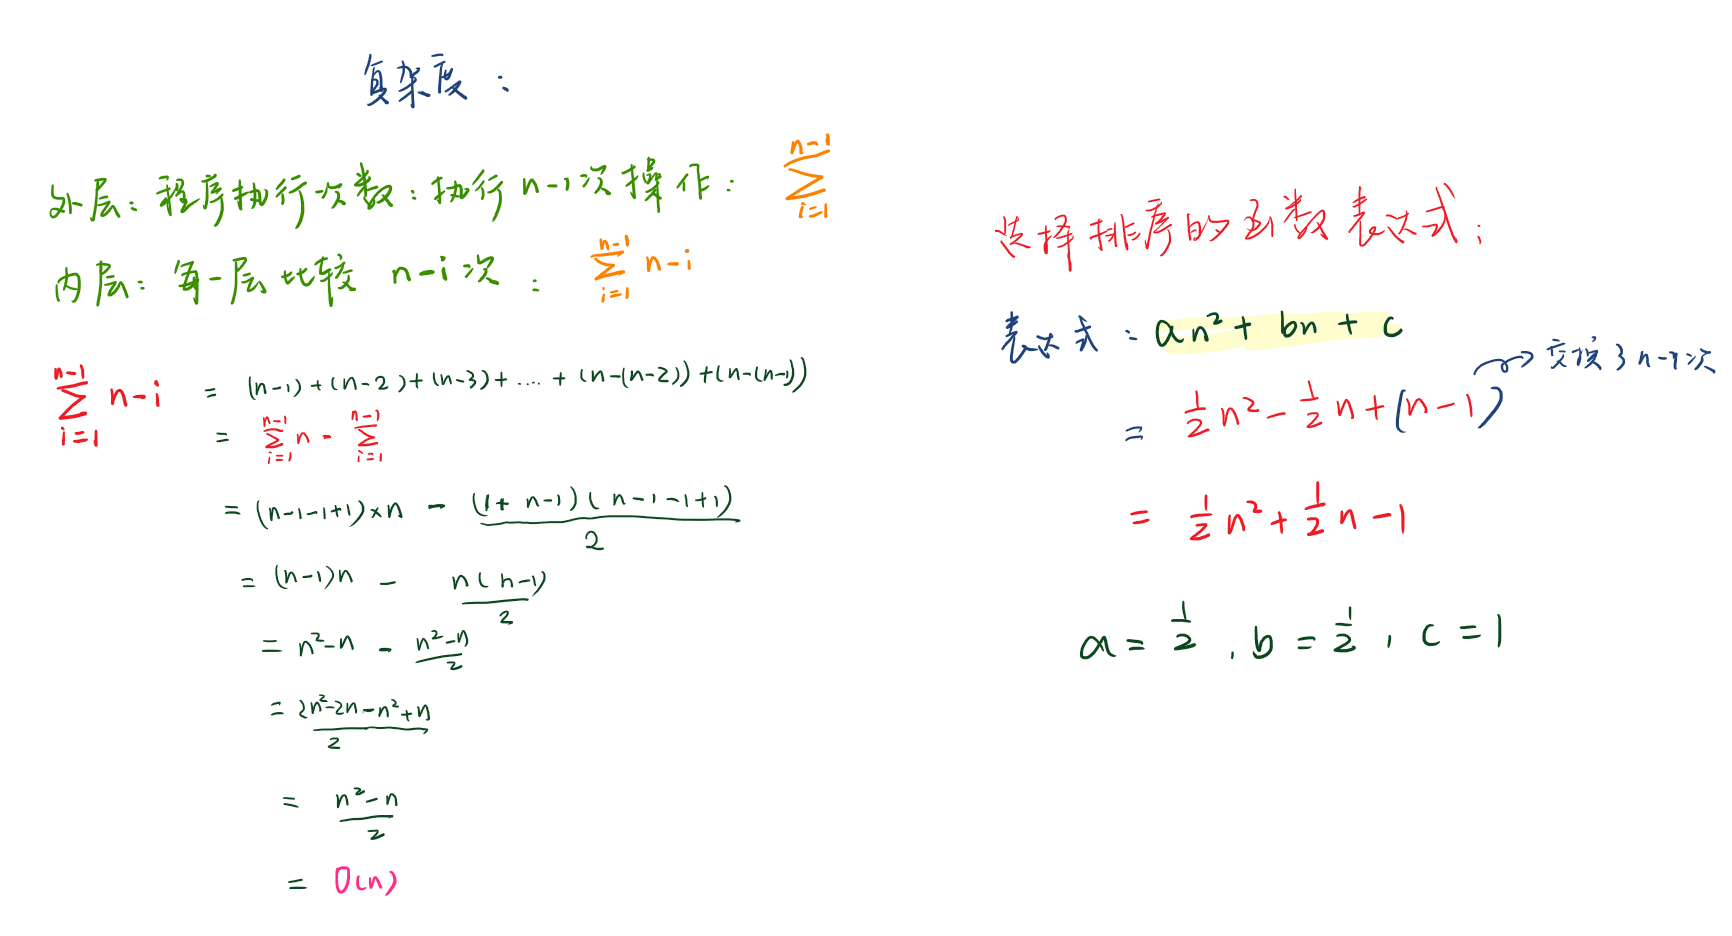 复杂度：
外层：程序执行次数：执行 n-1次操作： \sum_{i=1}^{n-1}
内层：每一层比较 n-i次： \sum_{i=1}^{n-1} n-i
\sum_{i=1}^{n-1} n-i = (n-1)+(n-2)+(n-3)+....+(n-(n-2))+(n-(n-1))
= \sum_{i=1}^{n-1} n - \sum_{i=1}^{n-1}
= (n-1-1+1)×n - \frac{(1+n-1)(n-1-1+1)}{2}
= (n-1)n - \frac{n(n-1)}{2}
= n²-n - \frac{n²-n}{2}
= \frac{2n²-2n-n²+n}{2}
= \frac{n²-n}{2}
= O(n)
选择排序的函数表达式：
表达式：an²+bn+c
= \frac{1}{2}n² - \frac{1}{2}n+(n-1) → 交换了n-1次
= \frac{1}{2}n²+\frac{1}{2}n-1
a=\frac{1}{2}，b=\frac{1}{2}，c=1